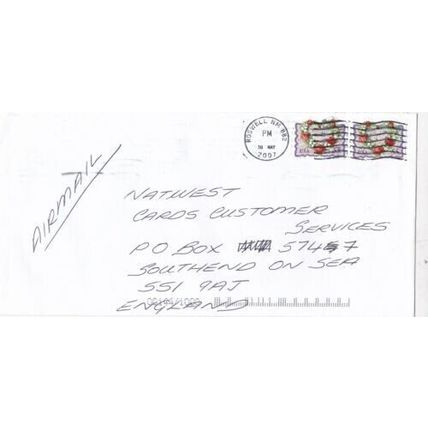 ROSWELL NM 882
PM
2007
AIRMAIL
NATWEST
CARDS CUSTOMER
SERVICES
PO BOX 5747
SOUTHEND ON SEA
SS1 9AJ
ENGLAND